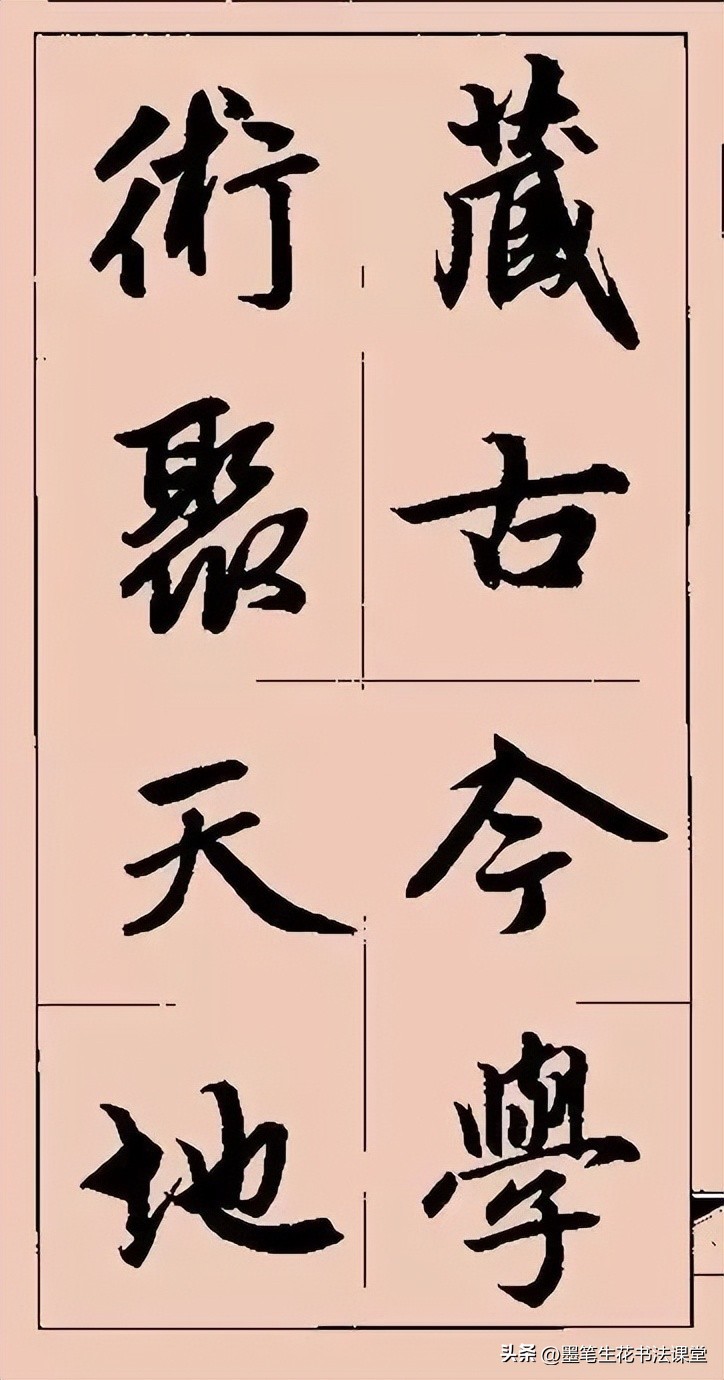 藏古今學
術聚天地
头条 @墨笔生花书法课堂